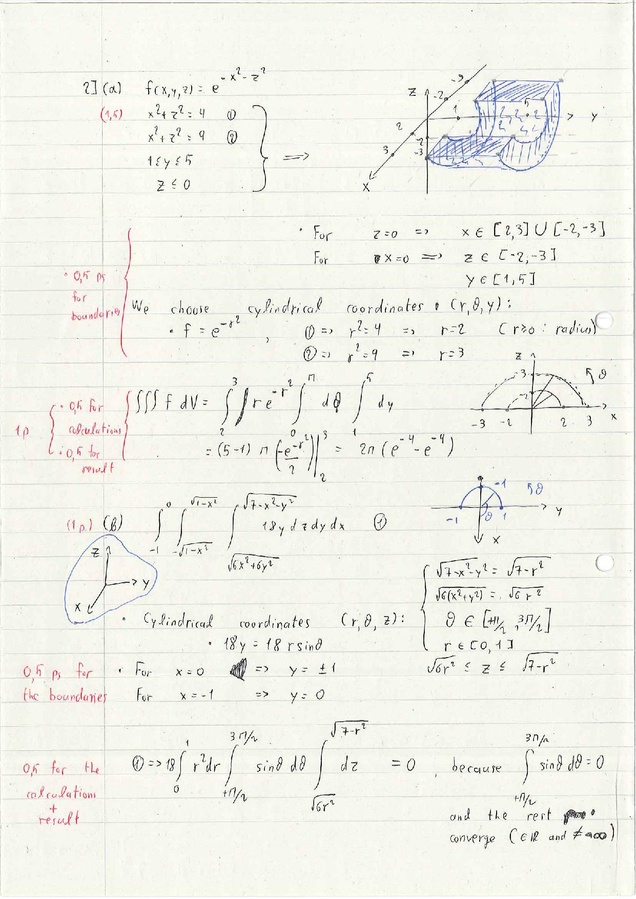 2] (a) f(x,y,z) = e^{-x²-z²}
(1,5) x²+z²=4 ①
x²+z²=9 ②
1≤y≤5 =>
z≤0
z -3 -2 1 5 y
2 3 -2 -3 x
• For z=0 => x ∈ [2,3] ∪ [-2,-3]
For x=0 => z ∈ [-2,-3]
y ∈ [1,5]
• 0,5 ps for boundaries
We choose cylindrical coordinates (r,θ,y):
• f = e^{-r²}, ① => r²=4 => r=2 (r≥0: radius)
② => r²=9 => r=3
1p • 0,5 for calculations • 0,5 for result
∫∫∫ f dV = ∫_2^3 r e^{-r²} ∫_0^π dθ ∫_1^5 dy
= (5-1) π (-e^{-r²}/2)|_2^3 = 2π (e^{-4} - e^{-9})
z -3 -2 θ
-3 -2 2 3 x
(1p.) (b) ∫_{-1}^0 ∫_{-√(1-x²)}^{√(1-x²)} ∫_{√(6x²+6y²)}^{√(7-x²-y²)} 18y dz dy dx ①
-1 θ
-1 θ 1 y
x
z y x
• Cylindrical coordinates (r,θ,z):
√(7-x²-y²) = √(7-r²)
√(6(x²+y²)) = √6 r²
θ ∈ [+π/2, 3π/2]
r ∈ [0,1]
√6r² ≤ z ≤ √(7-r²)
• 18y = 18 r sinθ
0,5 ps for the boundaries
• For x=0 => y = ±1
For x=-1 => y=0
0,5 for the calculations + result
① => 18 ∫_0^1 r² dr ∫_{+π/2}^{3π/2} sinθ dθ ∫_{√6r²}^{√(7-r²)} dz = 0, because ∫_{+π/2}^{3π/2} sinθ dθ = 0
and the rest
converge (∈ ℝ and ≠ ∞)